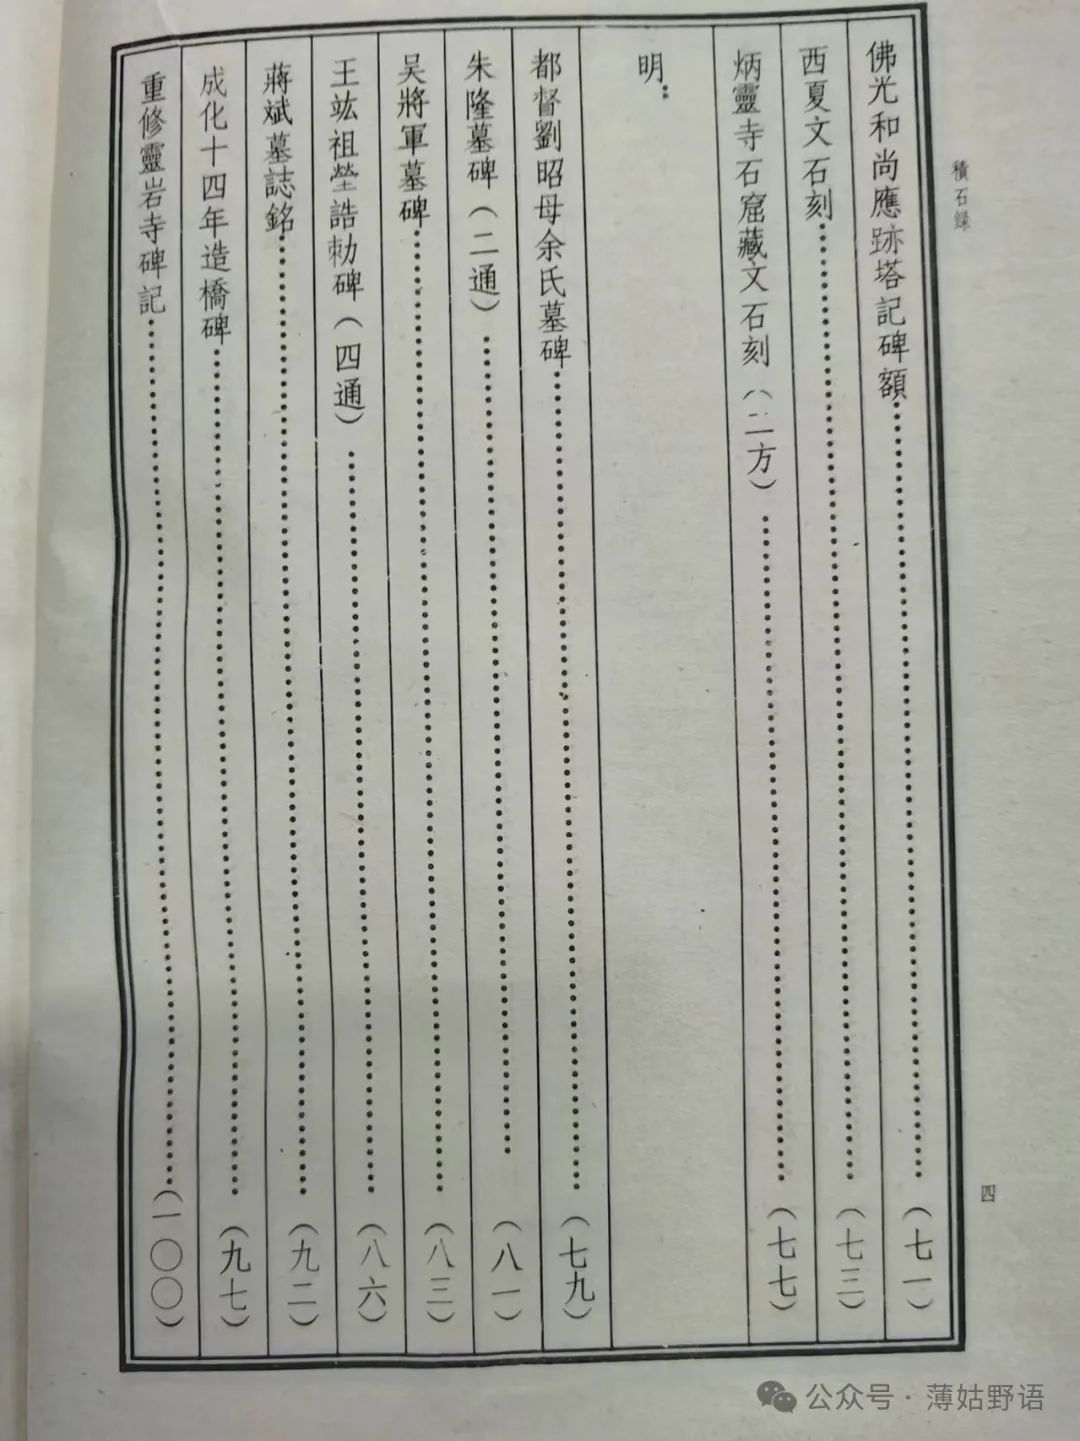 積石録
佛光和尚應跡塔記碑額……(七一)
西夏文石刻……(七三)
炳靈寺石窟藏文石刻(二方)……(七七)
明:
都督劉昭母余氏墓碑……(七九)
朱隆墓碑(二通)……(八一)
吴將軍墓碑……(八三)
王竑祖塋誥勅碑(四通)……(八六)
蔣斌墓誌銘……(九二)
成化十四年造橋碑……(九七)
重修靈岩寺碑記……(一〇〇)
四
公众号·薄姑野语